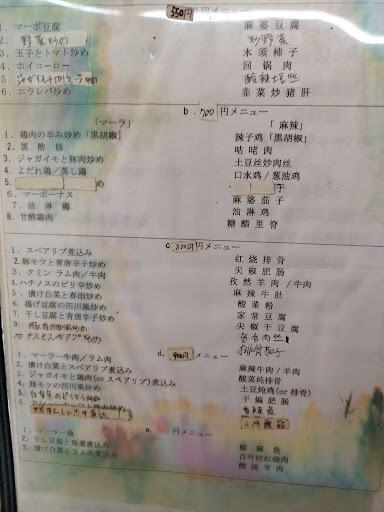 550円メニュー
1. マーボ豆腐 麻婆豆腐
2. 野菜炒め 炒野菜
3. 玉子とトマト炒め 木须柿子
4. ホイコーロー 回锅肉
5. 酸辣土豆丝
6. ニラレバ炒め 韭菜炒猪肝
b. 700円メニュー
「マーラ」 「麻辣」
1. 鶏肉の辛み炒め「黒胡椒」 辣子鸡「黑胡椒」
2. 黒酢豚 咕咾肉
3. ジャガイモと豚肉炒め 土豆丝炒肉丝
4. よだれ鶏/蒸し鶏 口水鸡/葱油鸡
5. め 子
6. マーボーナス 麻婆茄子
7. 油淋鶏 油淋鸡
8. 甘酢鶏肉 糖醋里脊
c. 800円メニュー
1. スペアリブ煮込み 红烧排骨
2. 豚モツと青唐辛子炒め 尖椒肥肠
3. クミン ラム肉/牛肉 孜然羊肉/牛肉
4. ハチノスのピリ辛炒め 麻辣牛肚
5. 漬け白菜と春雨炒め 酸菜粉
6. 揚げ豆腐の四川風炒め 家常豆腐
7. 干し豆腐と青唐辛子炒め 尖椒干豆腐
9.
10 ナスとスペアリブ 排骨茄子
d. 900円メニュー
1. マーラー牛肉/ラム肉 麻辣牛肉/羊肉
2. 漬け白菜とスペアリブ煮込み 酸菜炖排骨
3. ジャガイモと鶏肉(or スペアリブ)煮込み 土豆炖鸡(or 排骨)
4. 豚モツの四川風炒め 干煸肥肠
5.
6.
e. 円メニュー
1. マーラー魚 椒麻鱼
2. 干し豆腐と角煮煮込み 百叶结红烧肉
3. 漬け白菜とラム肉煮込み 酸汤羊肉